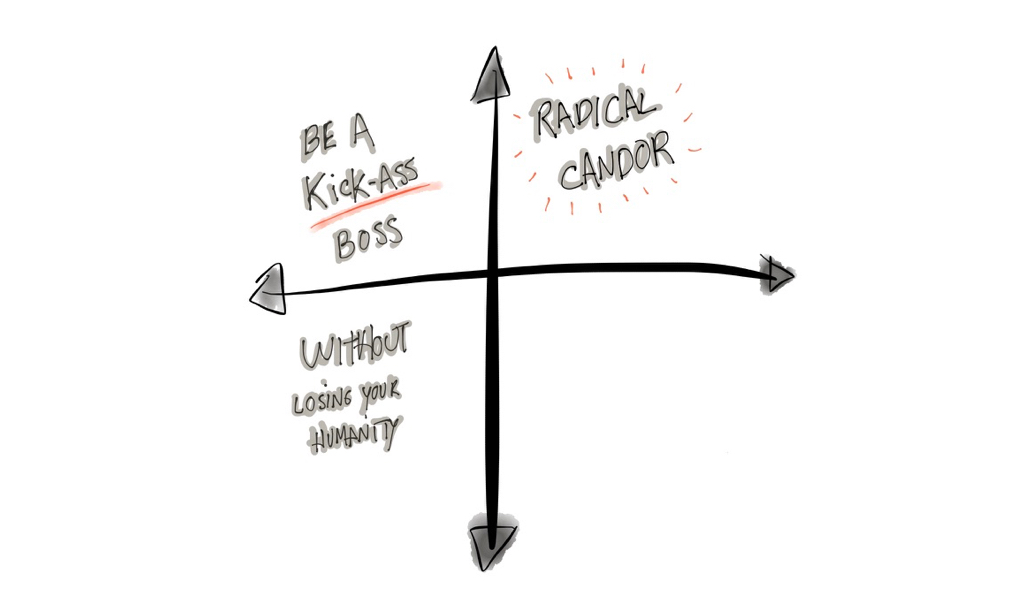 BE A
KicK-ASS
BOSS
RADICAL
CANDOR
WITHOUT
LOSING YOUR
HUMANITY